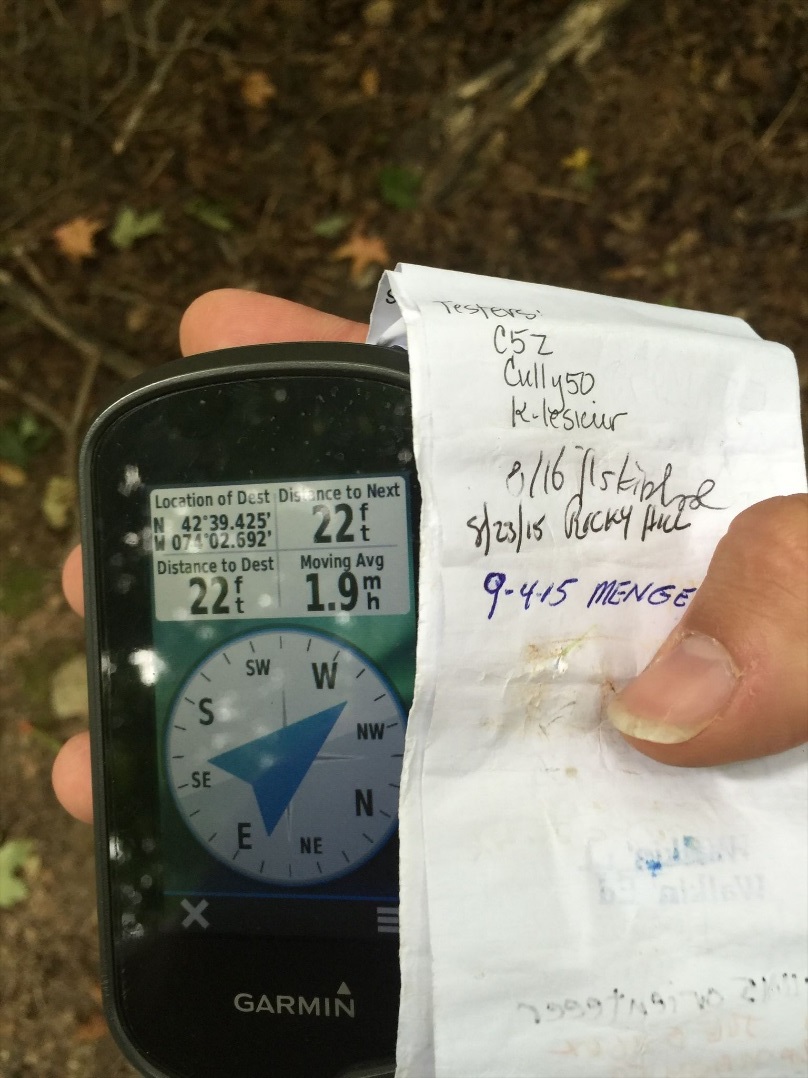 Location of Dest
N 42°39.425'
W 074°02.692'
Distance to Next
22 ft
Distance to Dest
22 ft
Moving Avg
1.9 mh
SW
W
S
NW
SE
N
E
NE
GARMIN
Testers:
C5Z
Cully50
K-lesieur
8/16
8/23/15 ROCKY HILL
9-4-15 MENGE
Walkin Ed